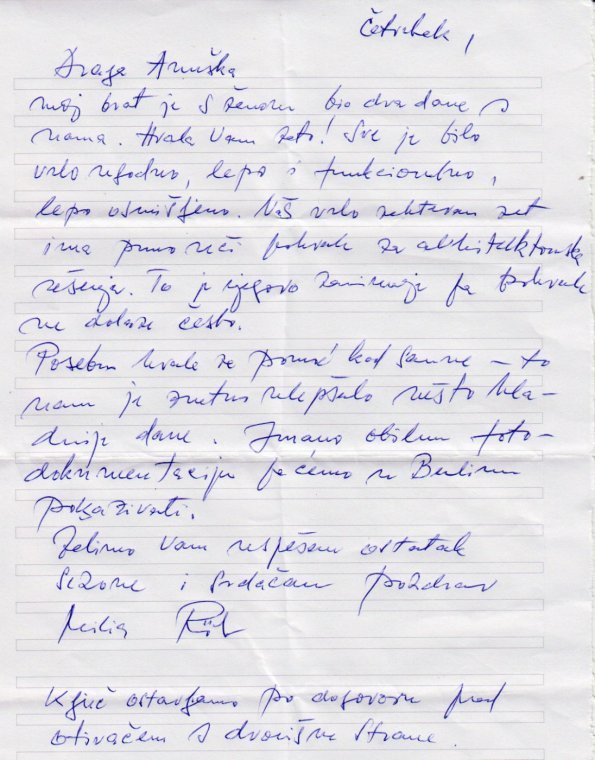 Četvrtak,
Draga Anuška
moj brat je s ženom bio dva dana s
nama. Hvala Vam zato! Sve je bilo
vrlo ugodno, lepo i funkcionalno,
lepo osmišljeno. Naš vrlo zahtevan zet
ima puno reči pohvale za arhitektonska
rešenja. To je njegovo zanimanje pa pohvale
ne dolaze često.
Posebna hvala za pomoć kod saune – to
nam je znatno ulepšalo nešto hla-
dnije dane. Imamo obilnu foto-
dokumentaciju pa ćemo u Berlinu
pokazivati.
Želimo Vam uspešan ostatak
sezone i srdačan pozdrav
Ključ ostavljamo po dogovoru pod
otiračem s dvorišne strane.